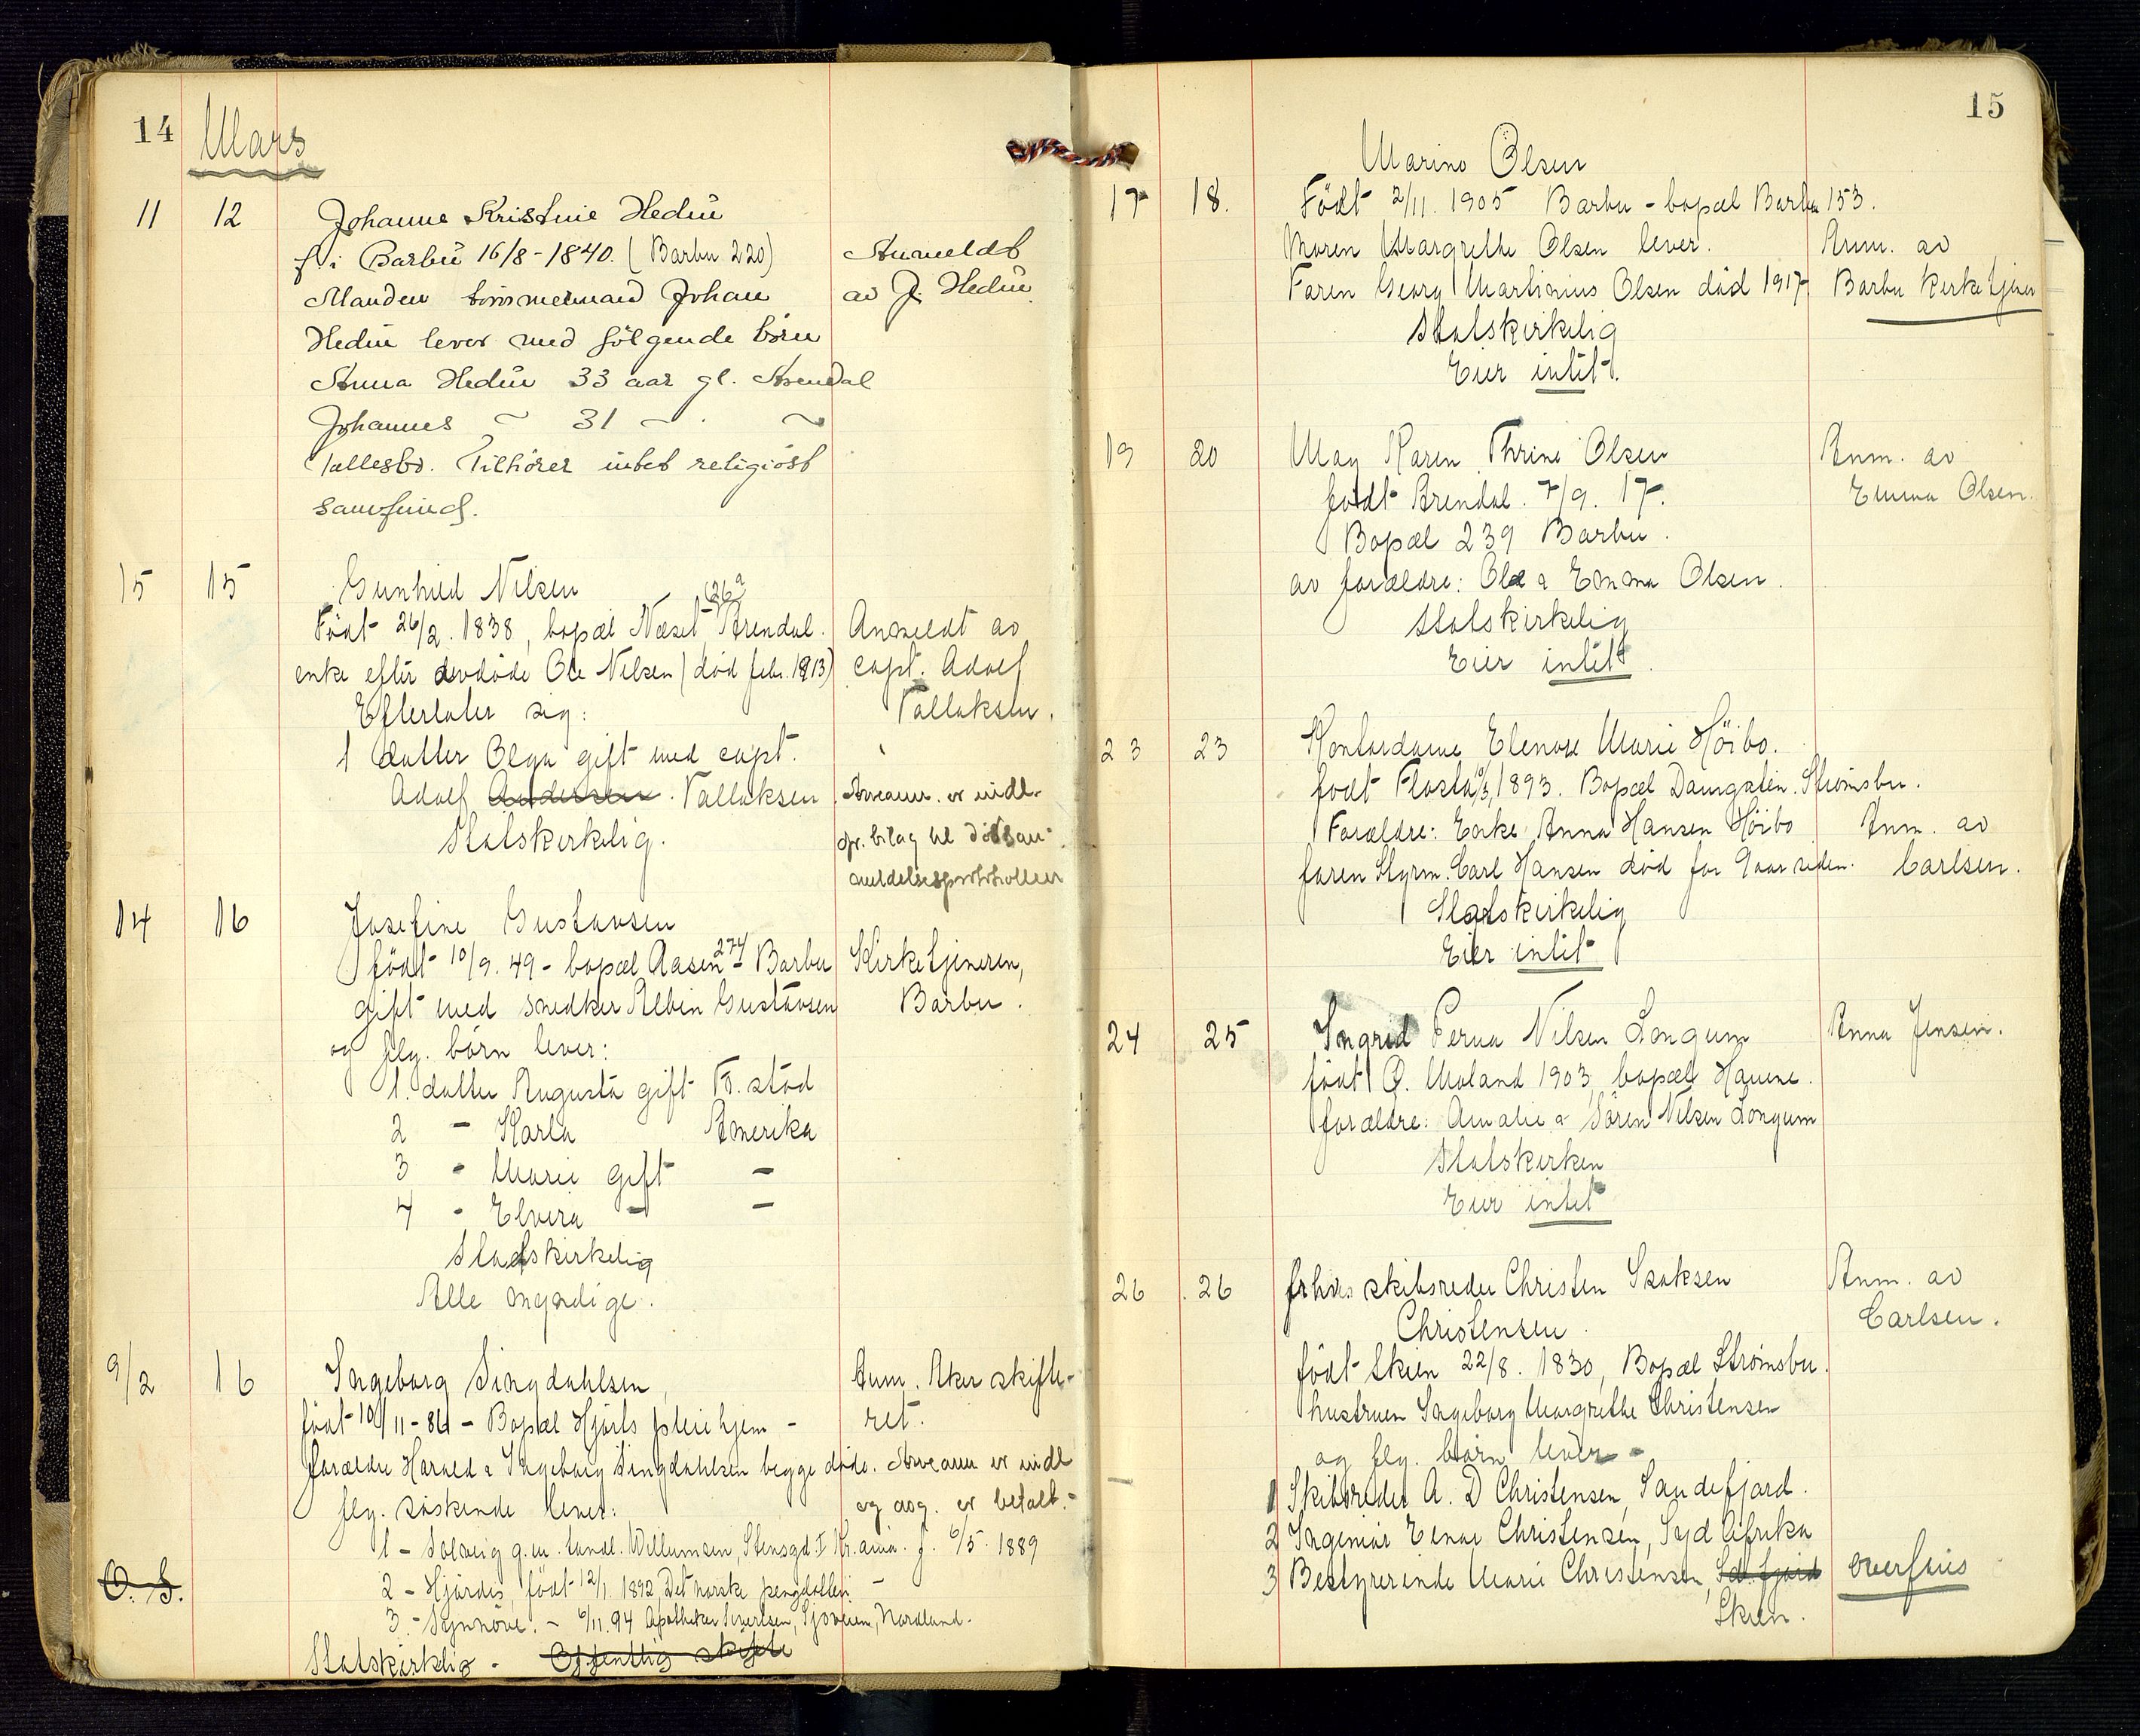 14 Mars
11 12 Johanne Kristine Hedin
f. i Barbu 16/8-1840. (Barbu 220) Anmeldt
Manden tømmermand Johan av J. Hedin
Hedin lever med følgende børn
Anna Hedin 33 aar gl. Arendal
Johannes ~ 31 ~ ~
Fællesbo. Tilhører intet religiøst
samfund.
15 15 Gunhild Nilsen
Født 26/2. 1838, bopæl Næset Arendal. Anmeldt av
enke efter avdøde Ole Nilsen (død febr. 1913) capt. Adolf
Efterlater sig: Tallaksen.
1 datter Olga gift med capt.
Adolf Andersen Tallaksen. Arveanm. er indl.
Statskirkelig. gr. bilag til dødsan-
meldelsesprotokollen
14 16 Josefine Gustavsen
født 10/9. 49 - bopæl Aasen 274 - Barbu Kirketjeneren,
gift med snedker Albin Gustavsen Barbu.
og flg. børn lever:
1. datter Augusta gift Fr. stad
2 - Karla Amerika
3 - Marie gift -
4 - Elvira - -
Statskirkelig
Alle myndige.
9/2 16 Ingeborg Singdahlsen, Anm. Aker skifte-
født 10/11-84 - Bopæl Hjørts pleiehjem - ret.
forældre Harald & Ingeborg Singdahlsen begge døde. Arveanm er indl
flg. søskende lever: og avg. er betalt.-
1 - Solveig g.m. tandl. Willumsen, Stensgd. I Kr.ania. f. 6/5. 1889
2 - Hjørdis, født 12/1. 1892, Det norske
O. S.
3. - Synnøve. - 6/11. 94 Apotheker Sivertsen, Nordland.
Statskirkelig - Offentlig skifte
15
Marino Olsen
17 18. Født 2/11. 1905 Barbu - bopæl Barbu 153.
Moren Margrethe Olsen lever. Anm. av
Faren Georg Martinius Olsen død 1917 Barbu Kirketjener
Statskirkelig
Eier intet.
19 20 May Karen Thrine Olsen Anm. av
født Arendal. 7/9. 17. Emma Olsen.
Bopæl 239 Barbu.
av forældre: Ole & Emma Olsen.
Statskirkelig
Eier intet.
23 23 Kontordame Elenore Marie Höibo.
født Flosta 1893. Bopæl Damgaten. Strømsbu.
Forældre: Enke Anna Hansen Höibo Anm. av
faren Styrm. Carl Hansen død for 9 aar siden. Carlsen.
Statskirkelig
Eier intet
24 25 Ingrid Perna Nilsen Longum Anna Jensen.
født Ø. Moland 1903, bopæl Havene.
forældre: Amalie & Søren Nilsen Longum
Statskirken
Eier intet
26 26 frhv. skibsreder Christen Isaksen Anm. av
Christensen. Carlsen.
født Skien 22/8. 1830, Bopæl Strømsbu.
hustruen Ingeborg Margrethe Christensen
og flg. børn lever -
1 Skibsreder A. D Christensen, Sandefjord.
2 Ingeniør Einar Christensen, Syd Afrika
3 Bestyrerinde Marie Christensen, Sd. fjord
Skien.